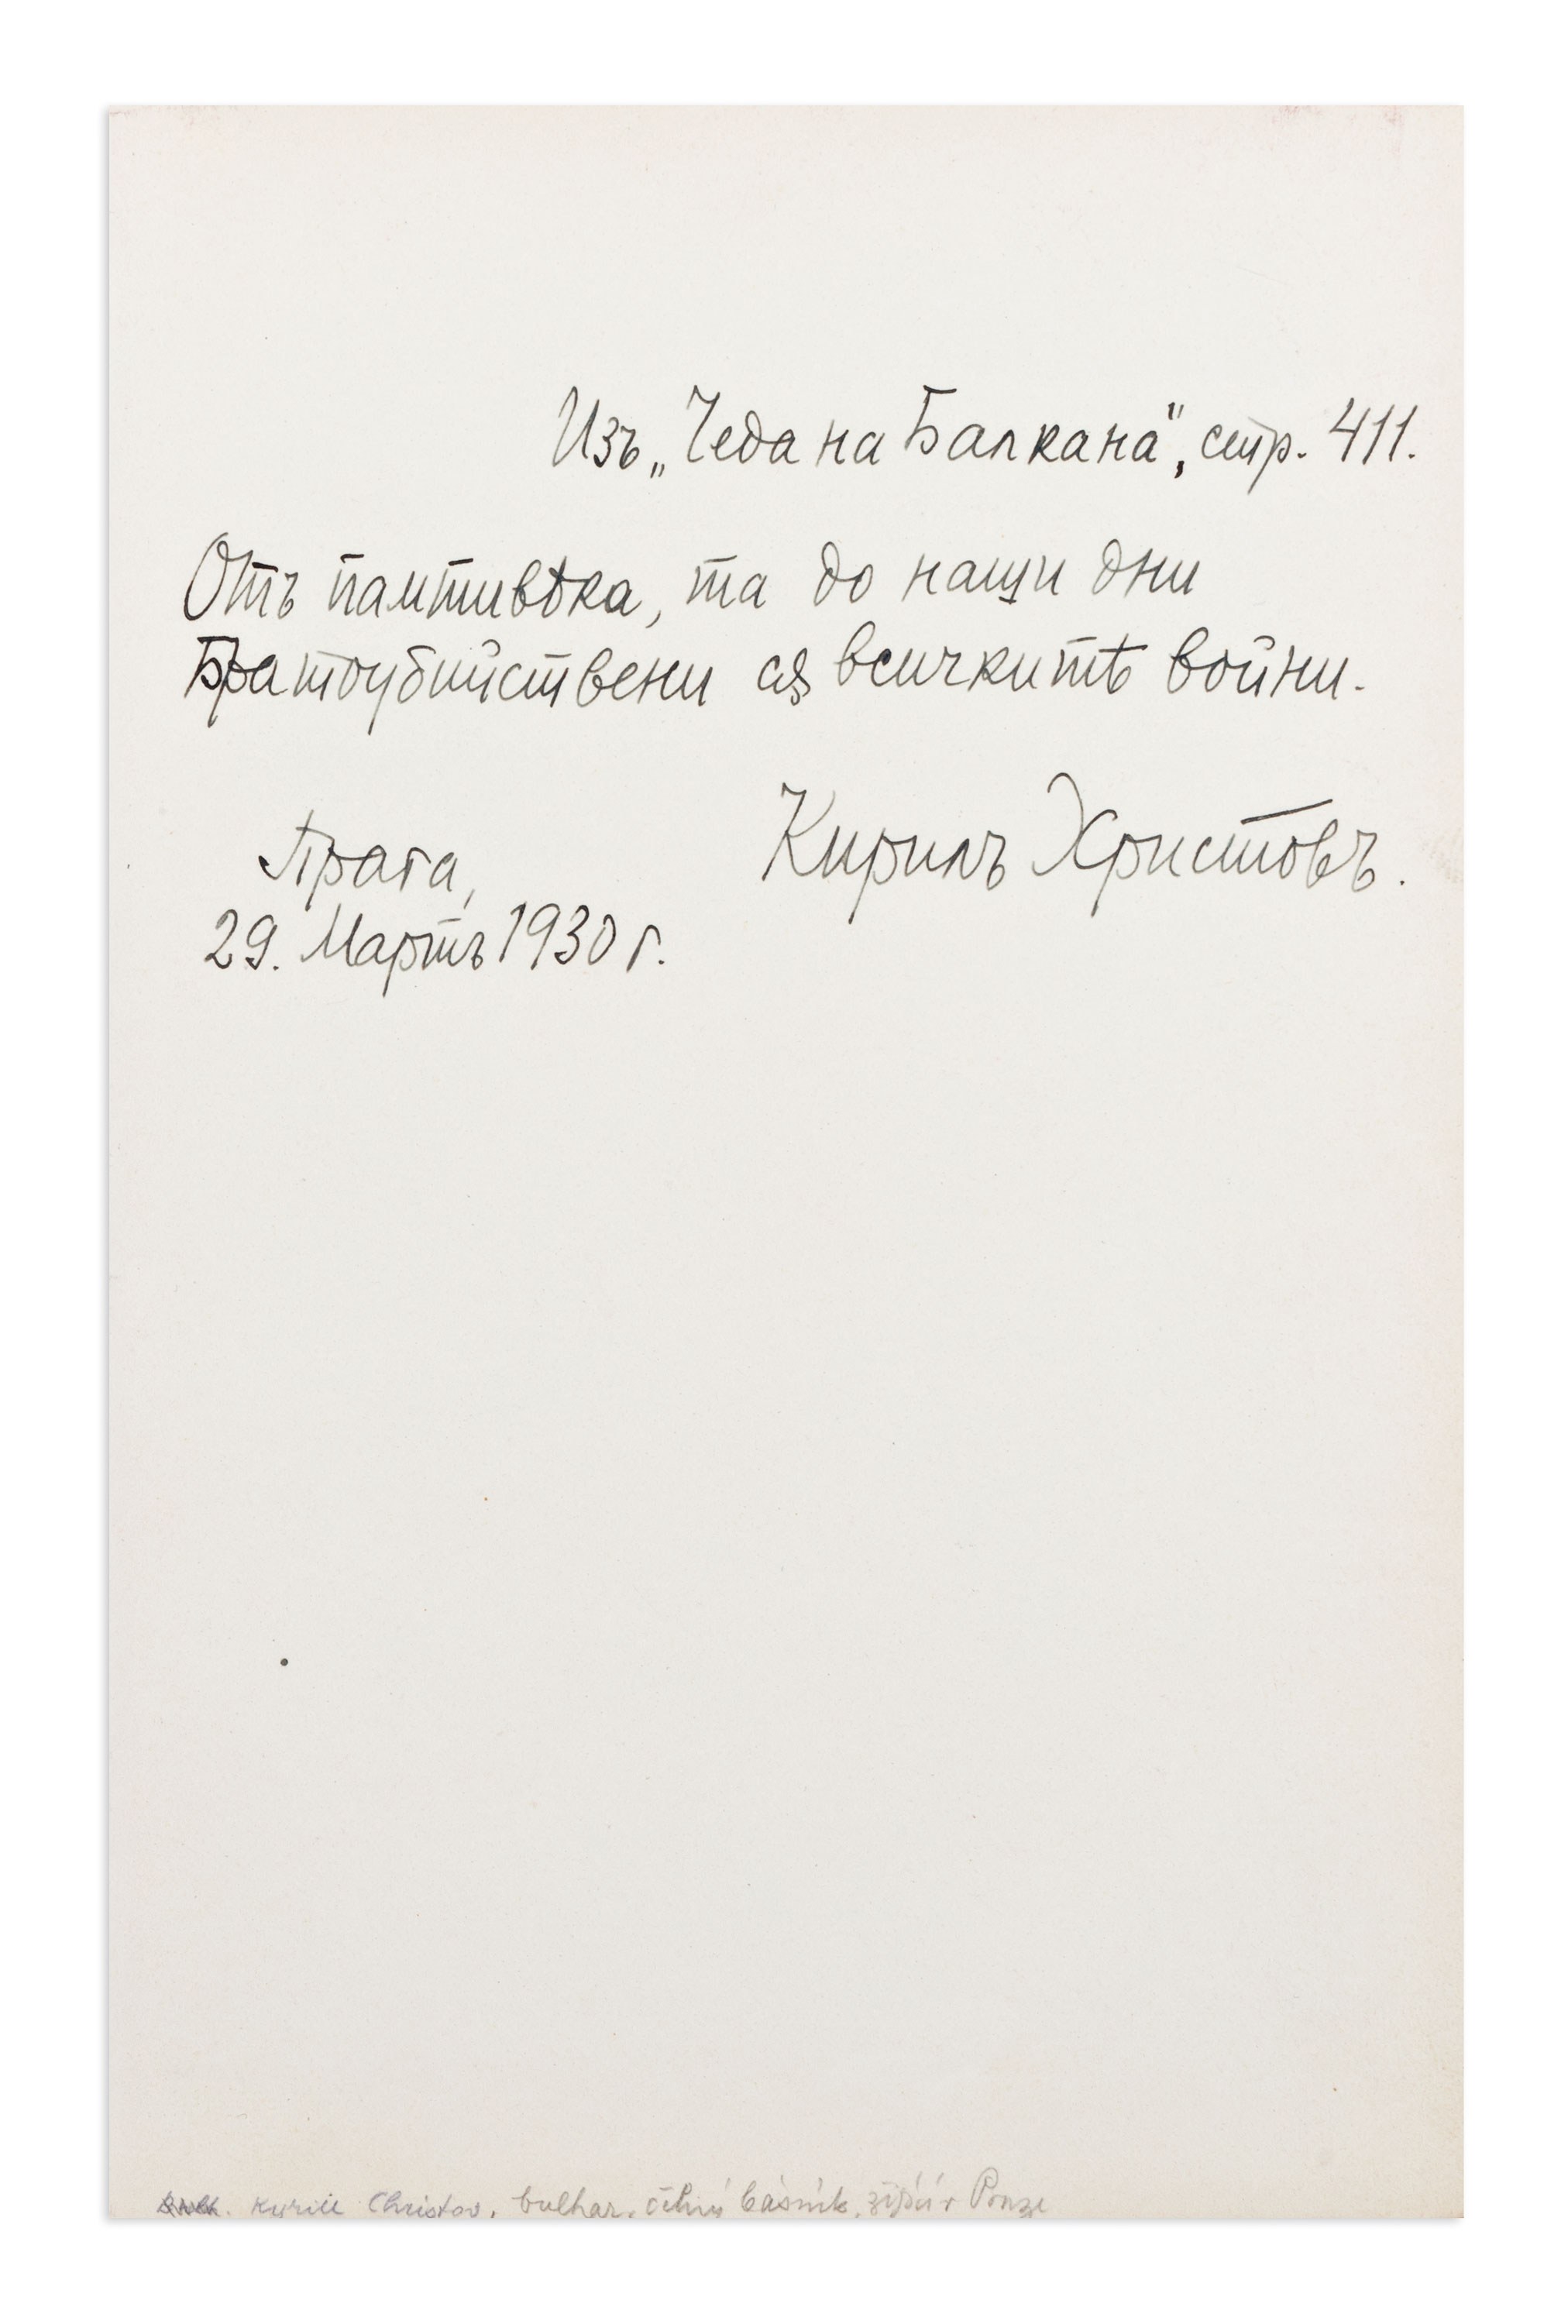 Изъ „Чеда на Балкана", стр. 411.
Отъ памтивѣка, та до наши дни
Братоубийствени сѫ всичкитѣ войни.
Кирилъ Христовъ.
Прага,
29. Мартъ 1930 г.
Kyrill Christov, bulhar. čelný básník, žijící v Praze